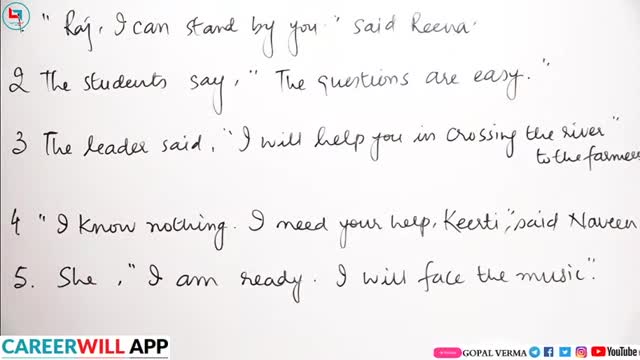 " Raj, I can stand by you " said Reena.
2 The students say, " The questions are easy."
3 The leader said, "I will help you in crossing the river"
to the farmers
4 " I know nothing. I need your help, Keerti," said Naveen
5. She , " I am ready. I will face the music".
CAREERWILL APP
GOPAL VERMA
YouTube